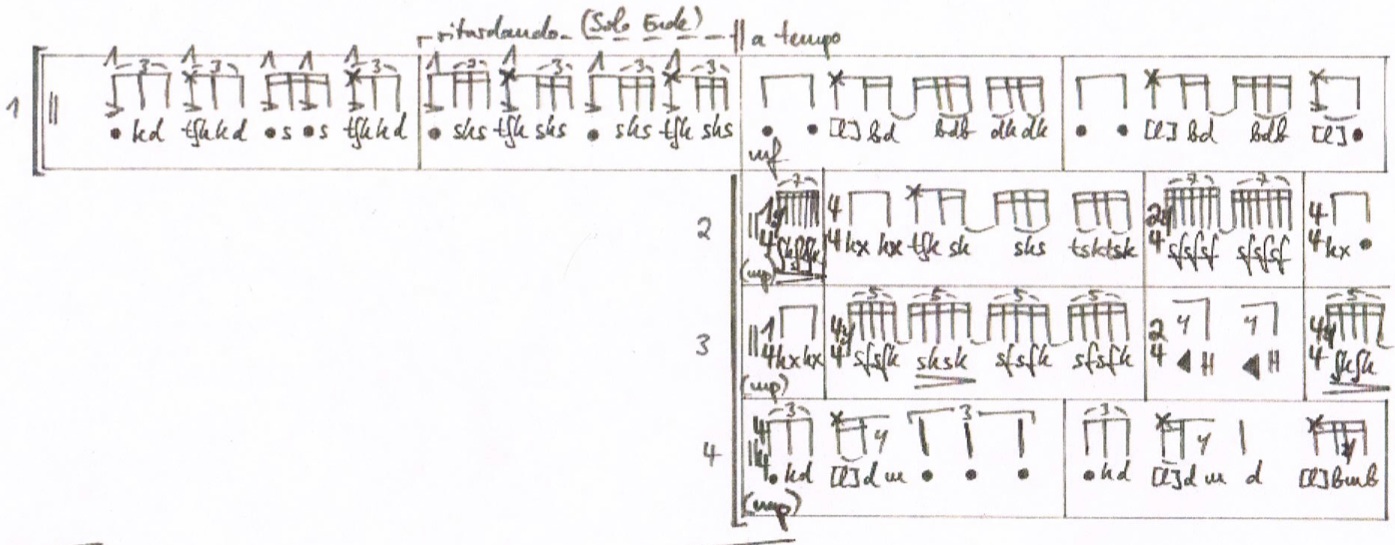 ritardando (Solo Ende) a tempo
1 • kd tʃkkd •s •s tʃkkd • sks tʃk sks • sks tʃk sks • • [l] bd bdb dkdk • • [l] bd bdb [l] •
mf
2 4 4 kx kx tʃk sk sks tsktsk 2 4 sfsfsf sfsfsf 4 4 kx •
(mp)
3 1 4 kxkx 4 4 sfsfk sksk sfsfk sfsfk 2 4 H H 4 4
(mp)
4 4 4 • kd [l]d m • • • • kd [l]d m d [l]bmb
(mp)